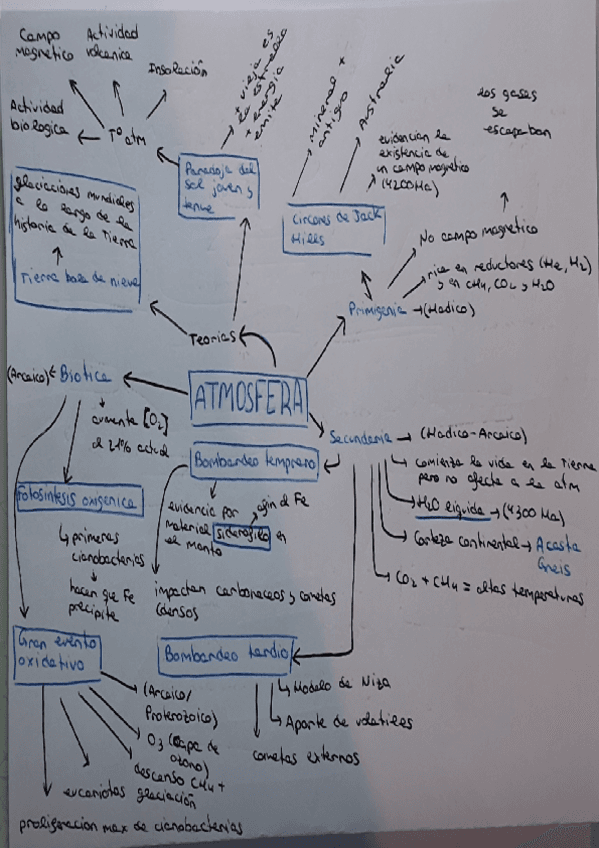 Campo
magnetico
Actividad
volcanica
Insolación
Actividad
biologica
Tº atm
+ vieja es
la estrella
+ energia
emite
Mineral +
antiguo
Australia
evidencian la
existencia de
un campo magnetico
(4200Ma)
los gases
se
escapaban
Paradoja del
sol joven y
tenue
Circones de Jack
Hills
glaciaciones mundiales
a lo largo de la
historia de la Tierra
Tierra bola de nieve
No campo magnetico
rica en reductores (He, H2)
y en CH4, CO2 y H2O
Primigenia → (Hadico)
Teorias
(Arcaico) Biotica
ATMOSFERA
aumenta [O2]
al 21% actual
Secundaria → (Hadico-Arcaico)
comienza la vida en la Tierra
pero no afecta a la atm
H2O liquida → (4300 Ma)
Corteza continental → Acasta
Gneis
CO2 + CH4 = altas temperaturas
Bombardeo temprano
evidencia por
material siderofilo en
el manto
afin al Fe
impactan carbonaceos y cometas
(densos
Fotosintesis oxigenica
primeras
cianobacterias
hacen que Fe
precipite
Gran evento
oxidativo
(Arcaico/
Proterozoico)
O3 (capa de
ozono)
descenso CH4 +
glaciación
eucariotas
proliferacion max de cianobacterias
Bombardeo tardio
Modelo de Niza
Aporte de volatiles
cometas externos